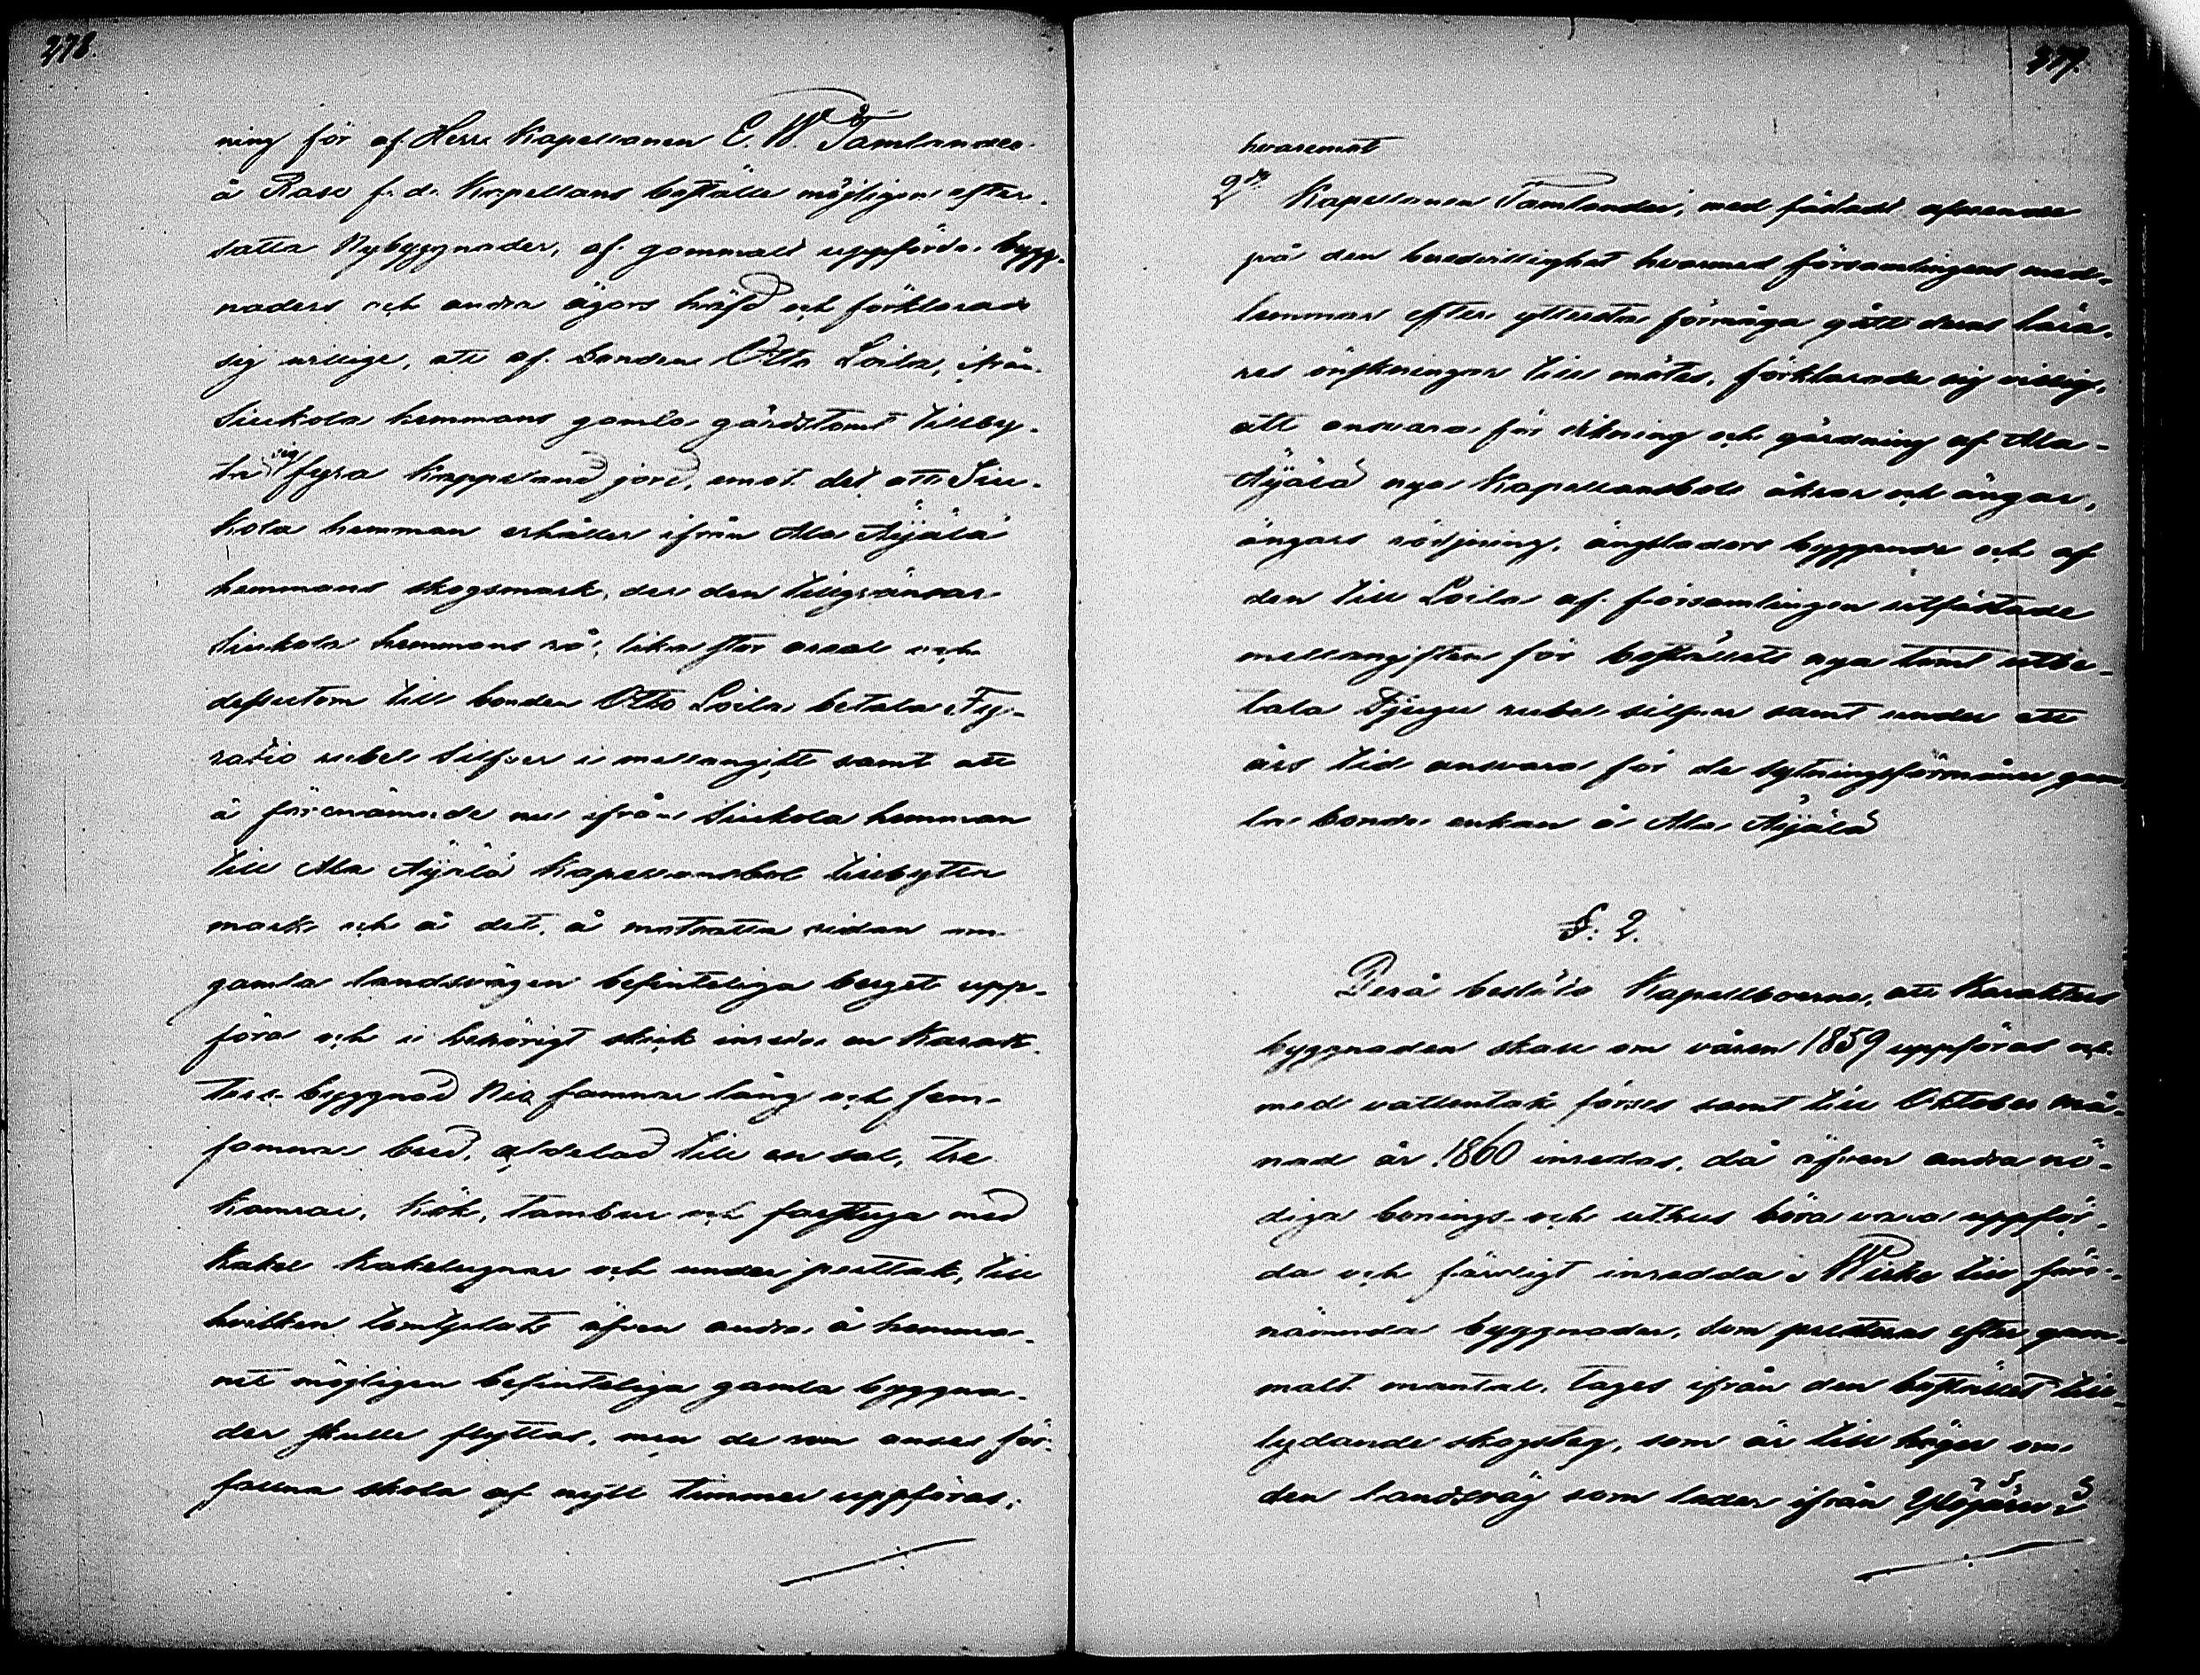 278.
ning för af Herr Kapellanen E. W. Tamlander
å Rasu f. d. Kapellans boställe möjligen efter-
satta Nybyggnader, af gammalt uppförda bygg-
naders och andra ägors häfd och förklarade
sig willige, att af bonden Otto Loila, ifrån
Siukola hemmans gamla gårdstomt tillby-
ta sig fyra Kappeland jord, emot det att Siu-
kola hemman erhåller ifrån Ala Äijälä
hemmans skogsmark, der den tillgränsar
Siukola hemmans rå, lika stor areal och
dessutom till bonden Otto Loila betala Fy-
ratio rubel Silfver i mellangift samt att
å förenämnde nu ifrån Siukola hemman
till Ala Äijälä Kapellansbol tillbytta
mark och å det, å motsatta sidan om
gamla landsvägen befinteliga berget upp-
föra och i behörigt skick inreda en Karak-
ters byggnad Nio famnar lång och fem
famnar bred, afdelad till en sal, tre
kamrar, kök, tambur och farstuga med
kakel kakelugnar och under perttak, till
hvilken tomtplats äfven andra å hemma-
net möjligen befinteliga gamla byggna-
der skulle flyttas, men de som anses för-
fallna skola af nytt timmer uppföras;
277.
hvaremot
2:o Kapellanen Tamlander, med fästadt afseende
på den beredvillighet hvarmed församlingens med-
lemmar efter yttersta förmåga gått deras lära-
res önskningar till mötes, förklarade sig villig,
att ansvara för dikning och gärdning af Ala-
Äijälä nya Kapellansbols åkrar och ängar,
ängars rödjning, ängslador byggande och af
den till Loila af församlingen utfästade
mellangiften för boställets nya tomt utbe-
tala Tjugu rubel silfver samt under ett
års tid ansvara för de sytningsförmåner gam
la bonde enkan å Ala Äijälä
§. 2.
Derå beslöto Kapellboerne, att Karakters
byggnaden skall om våren 1859 uppföras och
med vattentak förses samt till Oktober må-
nad år 1860 inredas, då äfven andra nö-
diga bonings- och uthus böra vara uppför-
da och färdigt inredda; Wirke till före-
nämnda byggnader, som presteras efter gam-
malt mantal, tages ifrån den bostället till-
lydande skogsteg, som är till höger om
den landsväg som leder ifrån Ylöjärvi